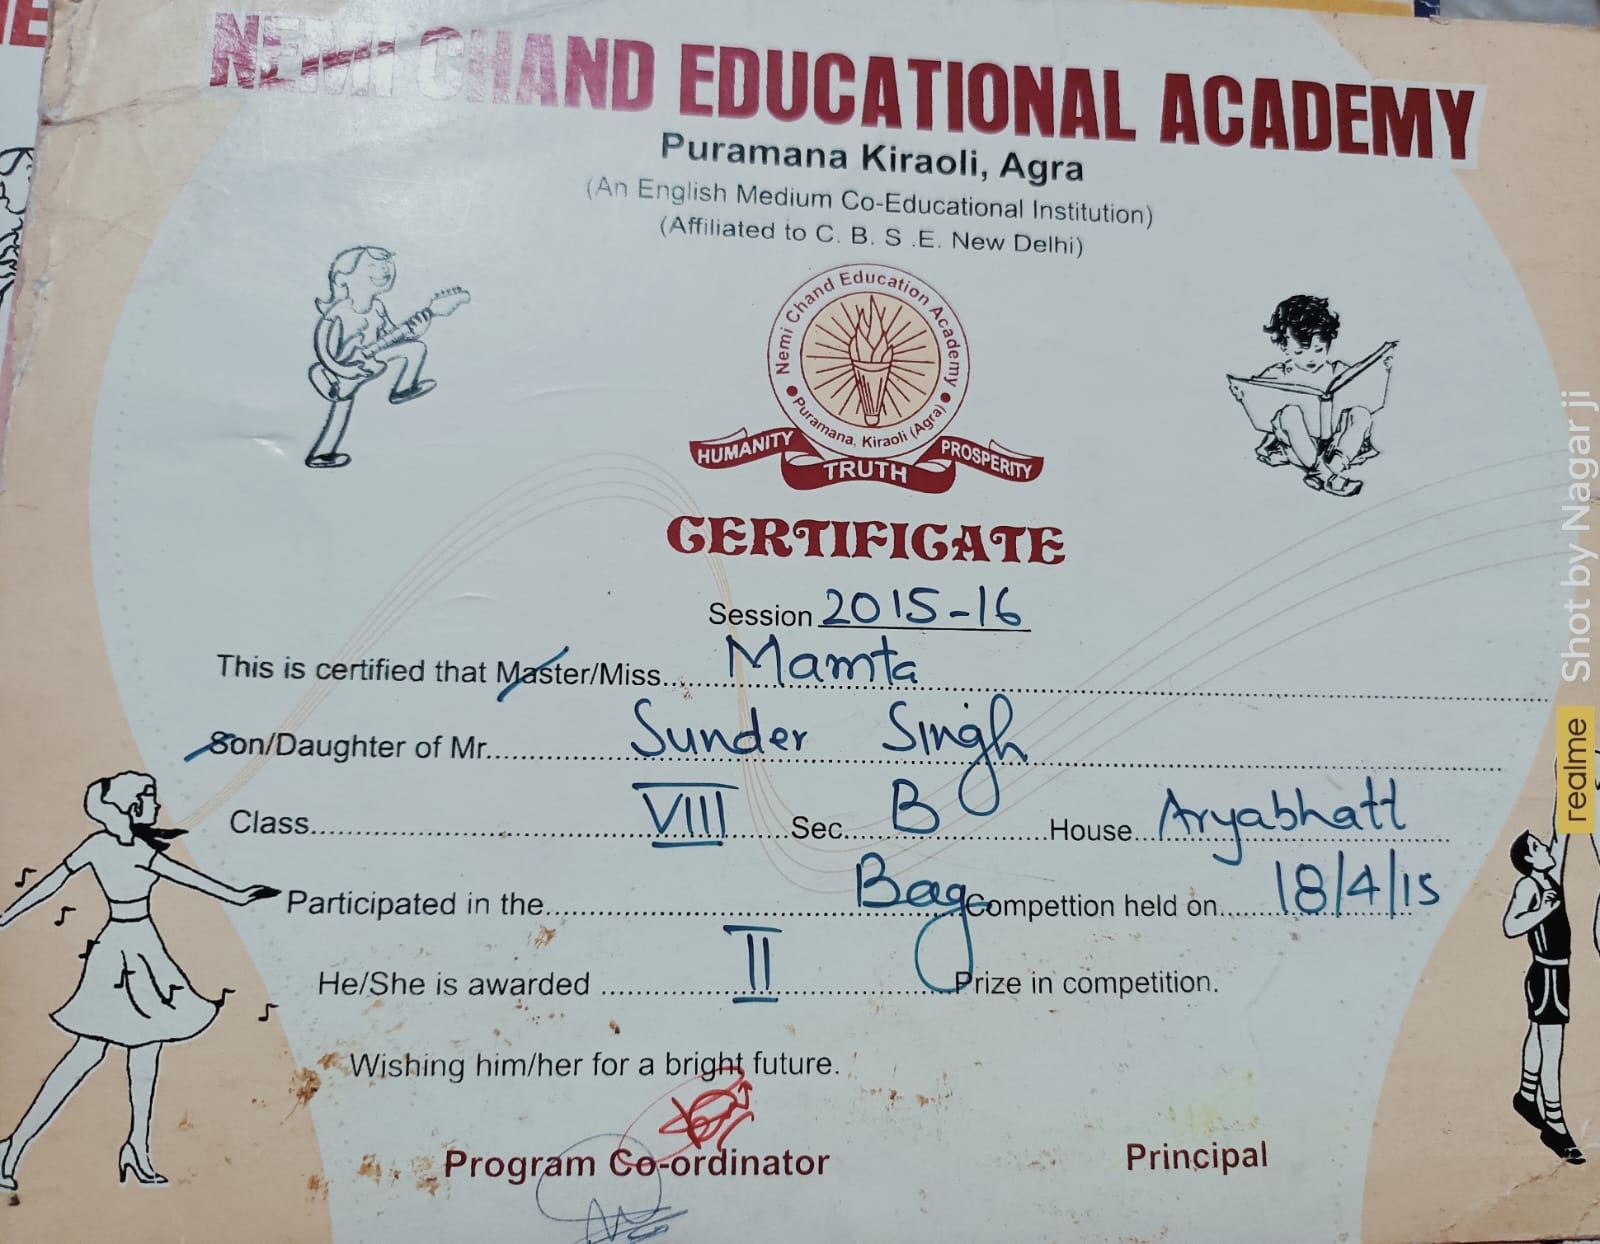 NEMI CHAND EDUCATIONAL ACADEMY
Puramana Kiraoli, Agra
(An English Medium Co-Educational Institution)
(Affiliated to C. B. S .E. New Delhi)
Nemi Chand Education Academy
Puramana, Kiraoli (Agra)
HUMANITY TRUTH PROSPERITY
CERTIFICATE
Session 2015-16
This is certified that Master/Miss Mamta
Son/Daughter of Mr. Sunder Singh
Class VIII Sec. B House Aryabhatt
Participated in the Bag Compettion held on 18/4/15
He/She is awarded II Prize in competition.
Wishing him/her for a bright future.
Program Co-ordinator Principal
realme Shot by Nagar ji